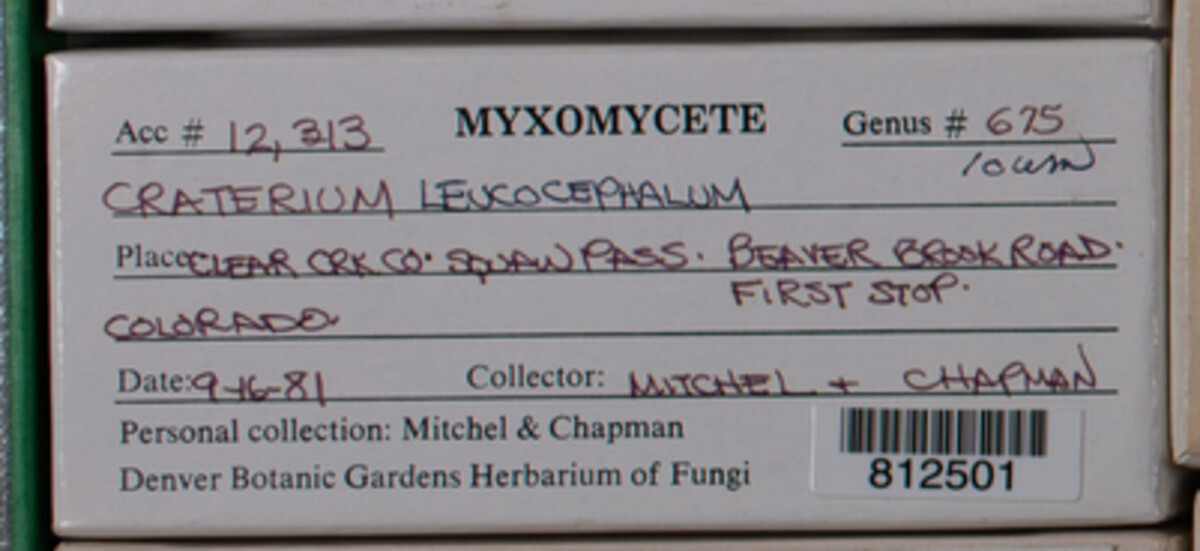 Acc # 12,313 MYXOMYCETE Genus # 675
CRATERIUM LEUCOCEPHALUM
Place CLEAR CRK CO. SQUAW PASS. BEAVER BROOK ROAD.
FIRST STOP.
COLORADO.
Date: 9-16-81 Collector: MITCHEL + CHAPMAN
Personal collection: Mitchel & Chapman
Denver Botanic Gardens Herbarium of Fungi
812501